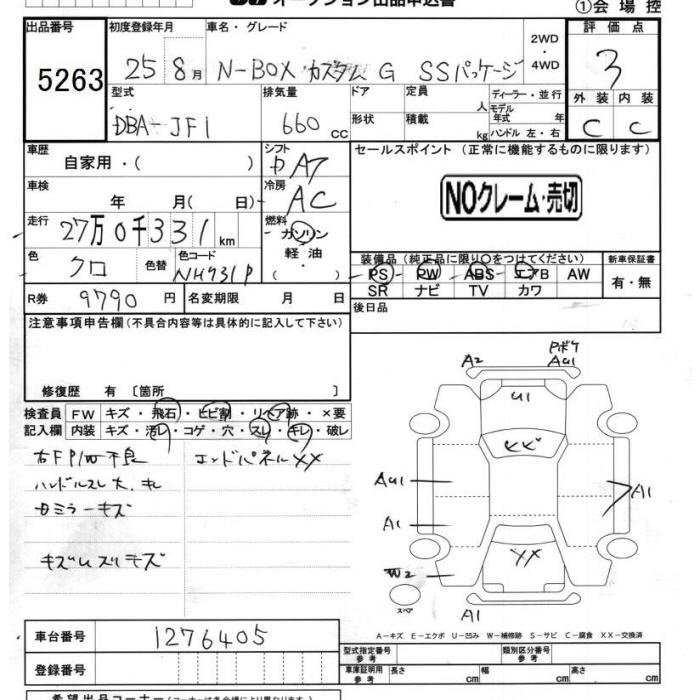 オークション出品申込書 ①会場控
出品番号 初度登録年月 車名・グレード 2WD・4WD 評価点
5263 25 8月 N-BOX カスタム G SSパッケージ 3
型式 排気量 ドア 定員 人 ディーラー・並行 外装 内装
DBA-JF1 660 CC 形状 積載 kg モデル年式 年 ハンドル 左・右 C C
車歴 シフト セールスポイント (正常に機能するものに限ります)
自家用・( ) A7
車検 冷房
年 月( 日) AC NOクレーム・売切
走行 燃料
27万0千331km ガソリン
軽油
・( )
色 色替 色コード 装備品 (純正品に限り○をつけてください) 新車保証書
クロ NH731P PS PW ABS エアB AW 有・無
SR ナビ TV カワ
R券 9790円 名変期限 月 日 後日品
注意事項申告欄(不具合内容等は具体的に記入して下さい)
修復歴 有 〔箇所 〕
検査員 FW キズ・飛石・ヒビ割・リペア跡・×要
記入欄 内装 キズ・汚レ・コゲ・穴・スレ・キレ・破レ
右FP/W不良 エンドパネルXX
ハンドルスレ大、キレ
ミラーキズ
キズ スリキズ
A2 Pボケ AU1
U1
XX
AU1
A1 A1
XX
W2
スペア
A1
A-キズ E-エクボ U-凹み W-補修跡 S-サビ C-腐食 XX-交換済
車台番号 1276405
型式指定番号 参考 類別区分番号 参考
登録番号 車庫証明用 参考 長さ cm 幅 cm 高さ cm
希望出品コーナー